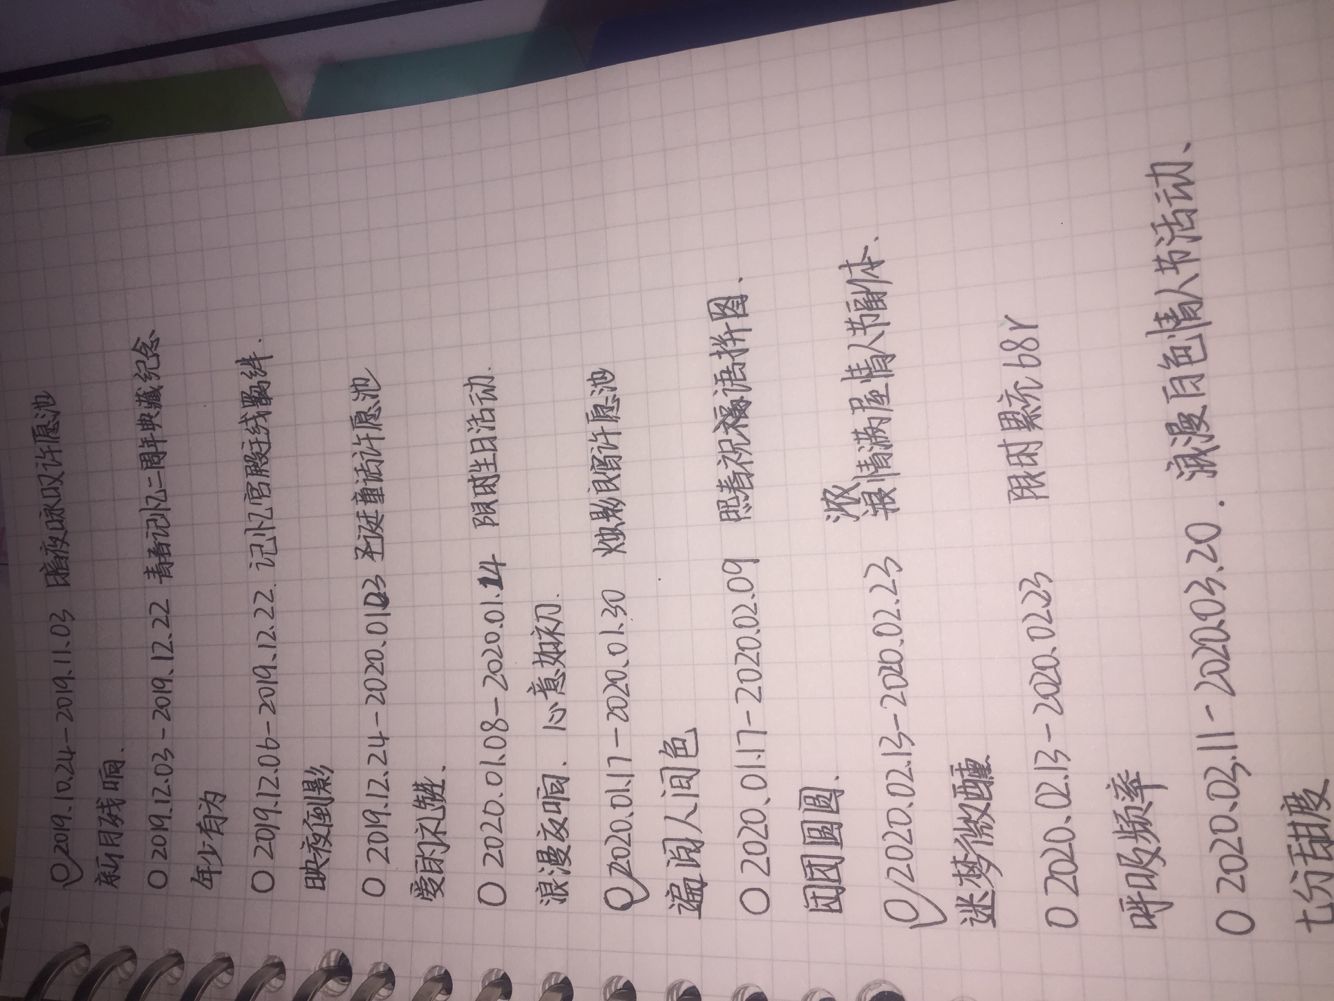 2019.10.24-2019.11.03 暗夜 许愿池
残响.
2019.12.03-2019.12.22 青春记忆二周年典藏纪念
年少有为
2019.12.06-2019.12.22. 记忆宫殿连线羁绊.
映夜倒影
2019.12.24-2020.01.23 圣诞童话许愿池
爱的礼赞.
2020.01.08-2020.01.14 限时生日活动.
浪漫夜响. 心意如初.
2020.01.17-2020.01.30 烛影良宵许愿池
遍阅人间色
2020.01.17-2020.02.09 熙春祝福语拼图.
团团圆圆.
2020.02.13-2020.02.23 浓情满屋情人节副本.
迷梦微醺
2020.02.13-2020.02.23 限时累充68r
呼吸频率
2020.03.11-2020.03.20. 浪漫白色情人节活动、
七分甜度